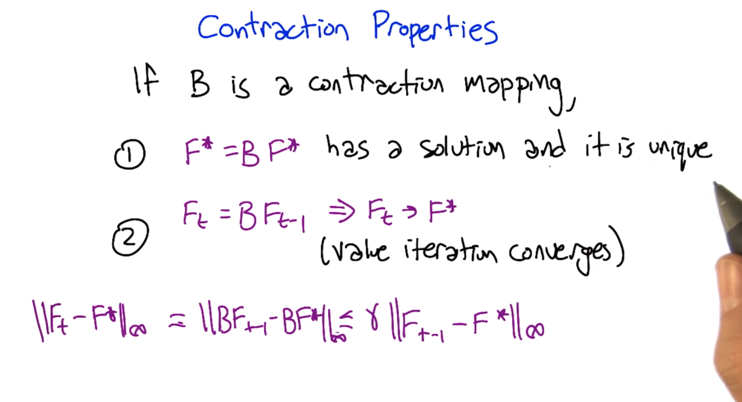 Contraction Properties
If B is a contraction mapping,
① F* = B F* has a solution and it is unique
② Fₜ = B Fₜ₋₁ ⇒ Fₜ → F*
(value iteration converges)
||Fₜ - F*||∞ = ||BFₜ₋₁ - BF*||∞ ≤ γ ||Fₜ₋₁ - F*||∞